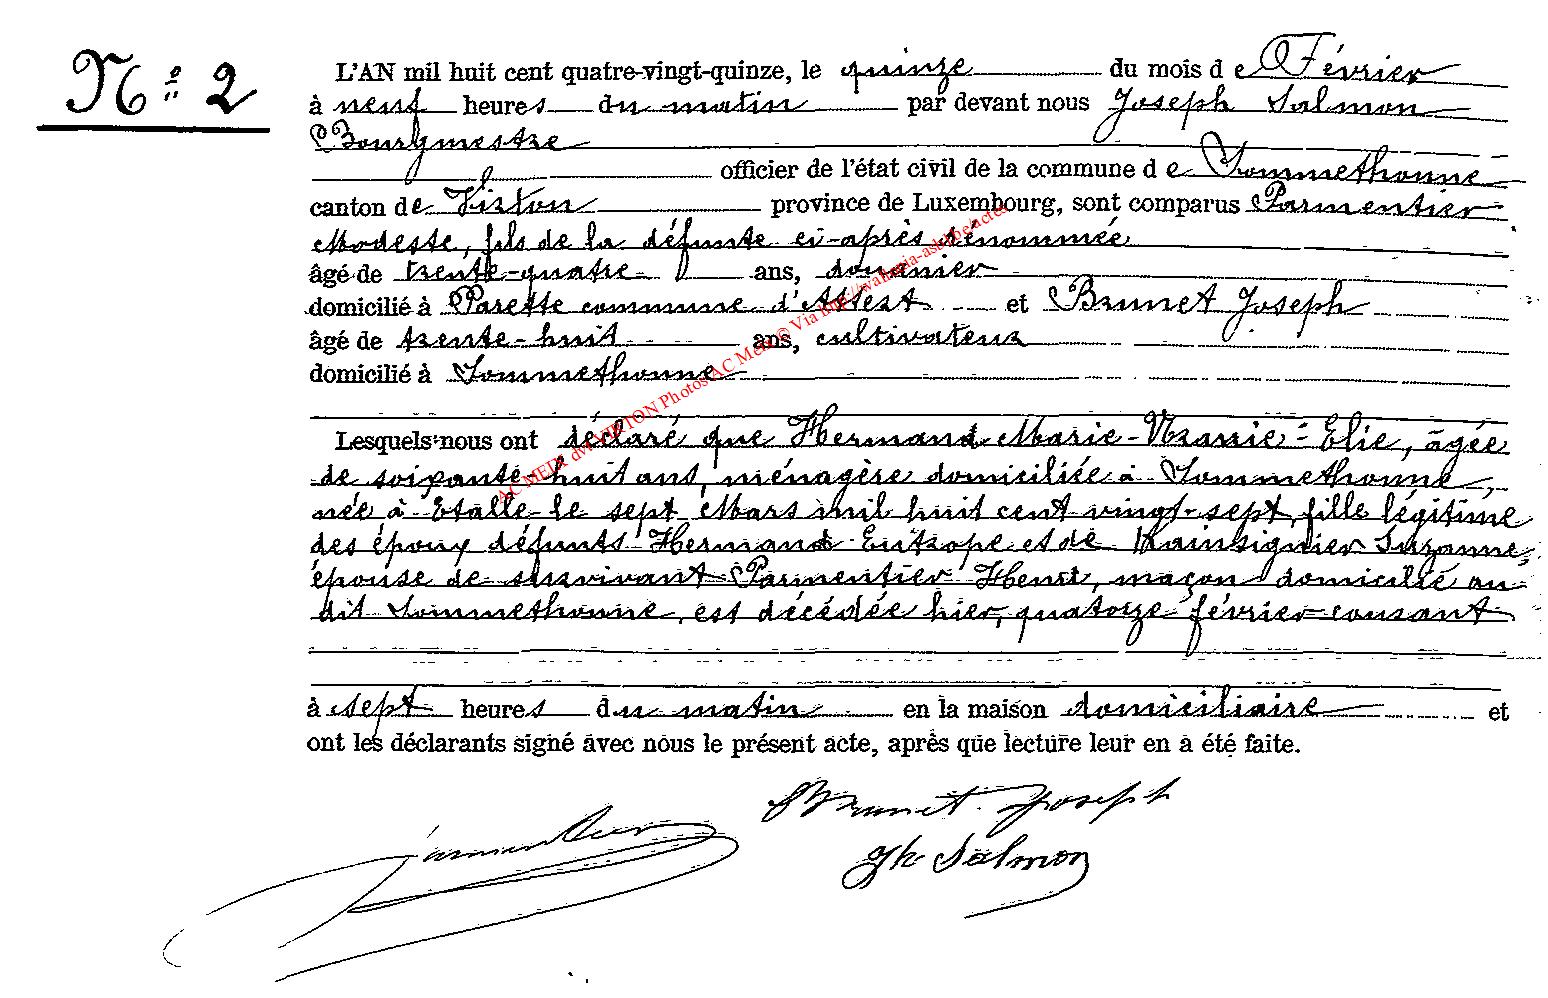 N° 2
L'AN mil huit cent quatre-vingt-quinze, le quinze du mois de Février
à neuf heures du matin par devant nous Joseph Salmon
Bourgmestre
officier de l'état civil de la commune de Sommethonne
canton de Virton province de Luxembourg, sont comparus Parmentier
Modeste, fils de la défunte ci-après dénommée
âgé de trente-quatre ans, douanier
domicilié à Parette commune d'Attert et Brunet Joseph
âgé de trente-huit ans, cultivateur
domicilié à Sommethonne
Lesquels nous ont déclaré que Hermand Marie-Uranie-Elie, âgée
de soixante huit ans, ménagère domiciliée à Sommethonne,
née à Etalle le sept Mars mil huit cent vingt-sept, fille légitime
des époux défunts Hermand Eutrope et de Rainsignier Suzanne,
épouse de survivant Parmentier Henri, maçon domicilié au
dit Sommethonne, est décédée hier, quatorze février courant
à sept heures du matin en la maison domiciliaire et
ont les déclarants signé avec nous le présent acte, après que lecture leur en a été faite.
Brunet Joseph
Parmentier
Jh Salmon